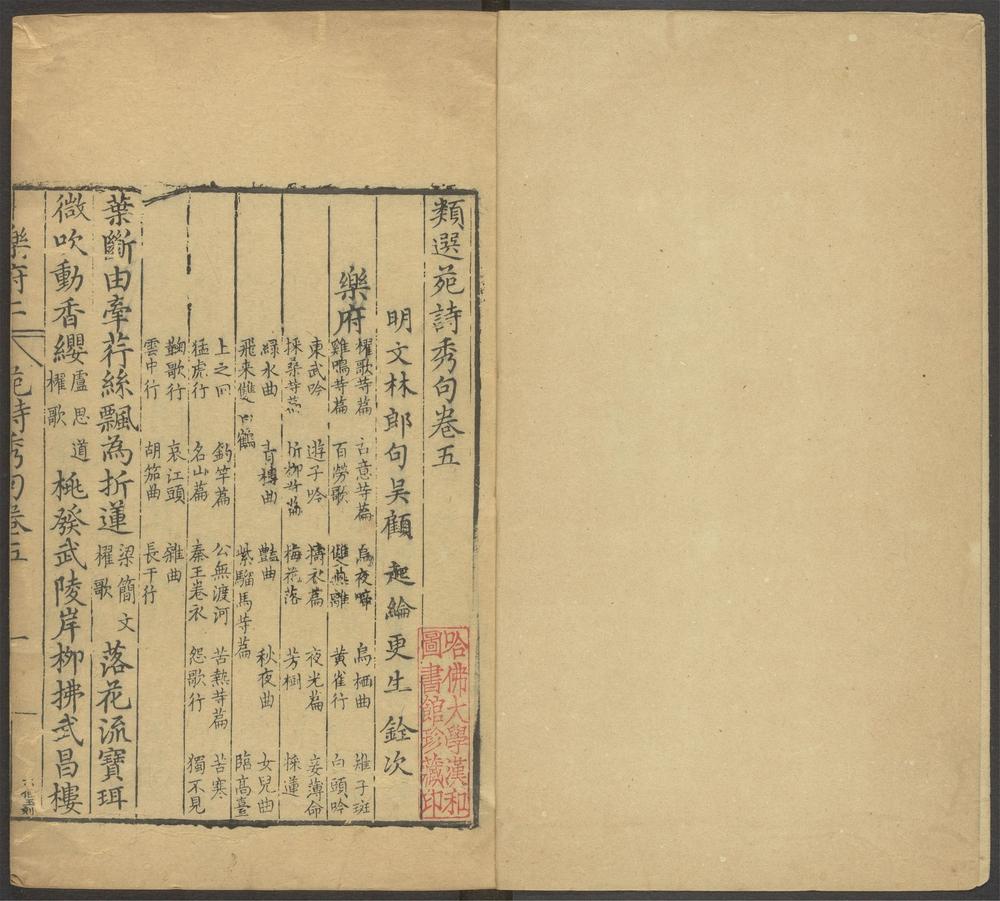 類選苑詩秀句卷五
明文林郎句吳顧 起綸更生 銓次
樂府
櫂歌等篇 古意等篇 烏夜啼 烏栖曲 雉子斑
雞鳴等篇 百勞歌 雙燕離 黃雀行 白頭吟
東武吟 遊子吟 擣衣篇 夜光篇 妾薄命
採桑等篇 折柳等篇 梅花落 芳樹 採蓮
綠水曲 曲 豔曲 秋夜曲 女兒曲
飛來雙白鶴 紫騮馬等篇 臨高臺
上之回 釣竿篇 公無渡河 苦熱等篇 苦寒
猛虎行 名山篇 秦王卷衣 怨歌行 獨不見
鞠歌行 哀江頭 雜曲
雲中行 胡笳曲 長干行
葉斷由牽荇絲飄為折蓮 梁簡文櫂歌 落花流寶珥
微吹動香纓 盧思道櫂歌 桃發武陵岸柳拂武昌樓
樂府二 苑詩秀句卷五 一
哈佛大學漢和
圖書館珍藏印